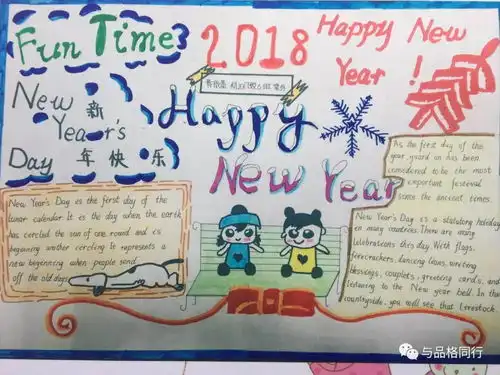 Fun Time
2018
Happy New
Year !
New 新
Year's
Day 年 快 乐
Happy
New Year
New Year's Day is the first day of the
lunar calendar. It is the day when the earth
has circled the sun of one round and is
beginning another circling. It represents a
new beginning when people send
off the old days
As the first day of the
year, yuard un has been
considered to be the most
important festeval
some the ancient times.
New Year's Day is a statutory holiday
in many countries. There are many
celebrations this day. With flags,
firecrackers, dancing lions, writing
blessings, couplets, greeting cards, and
listening to the New year bell. In the
countryside, you will see that livestock.
与品格同行